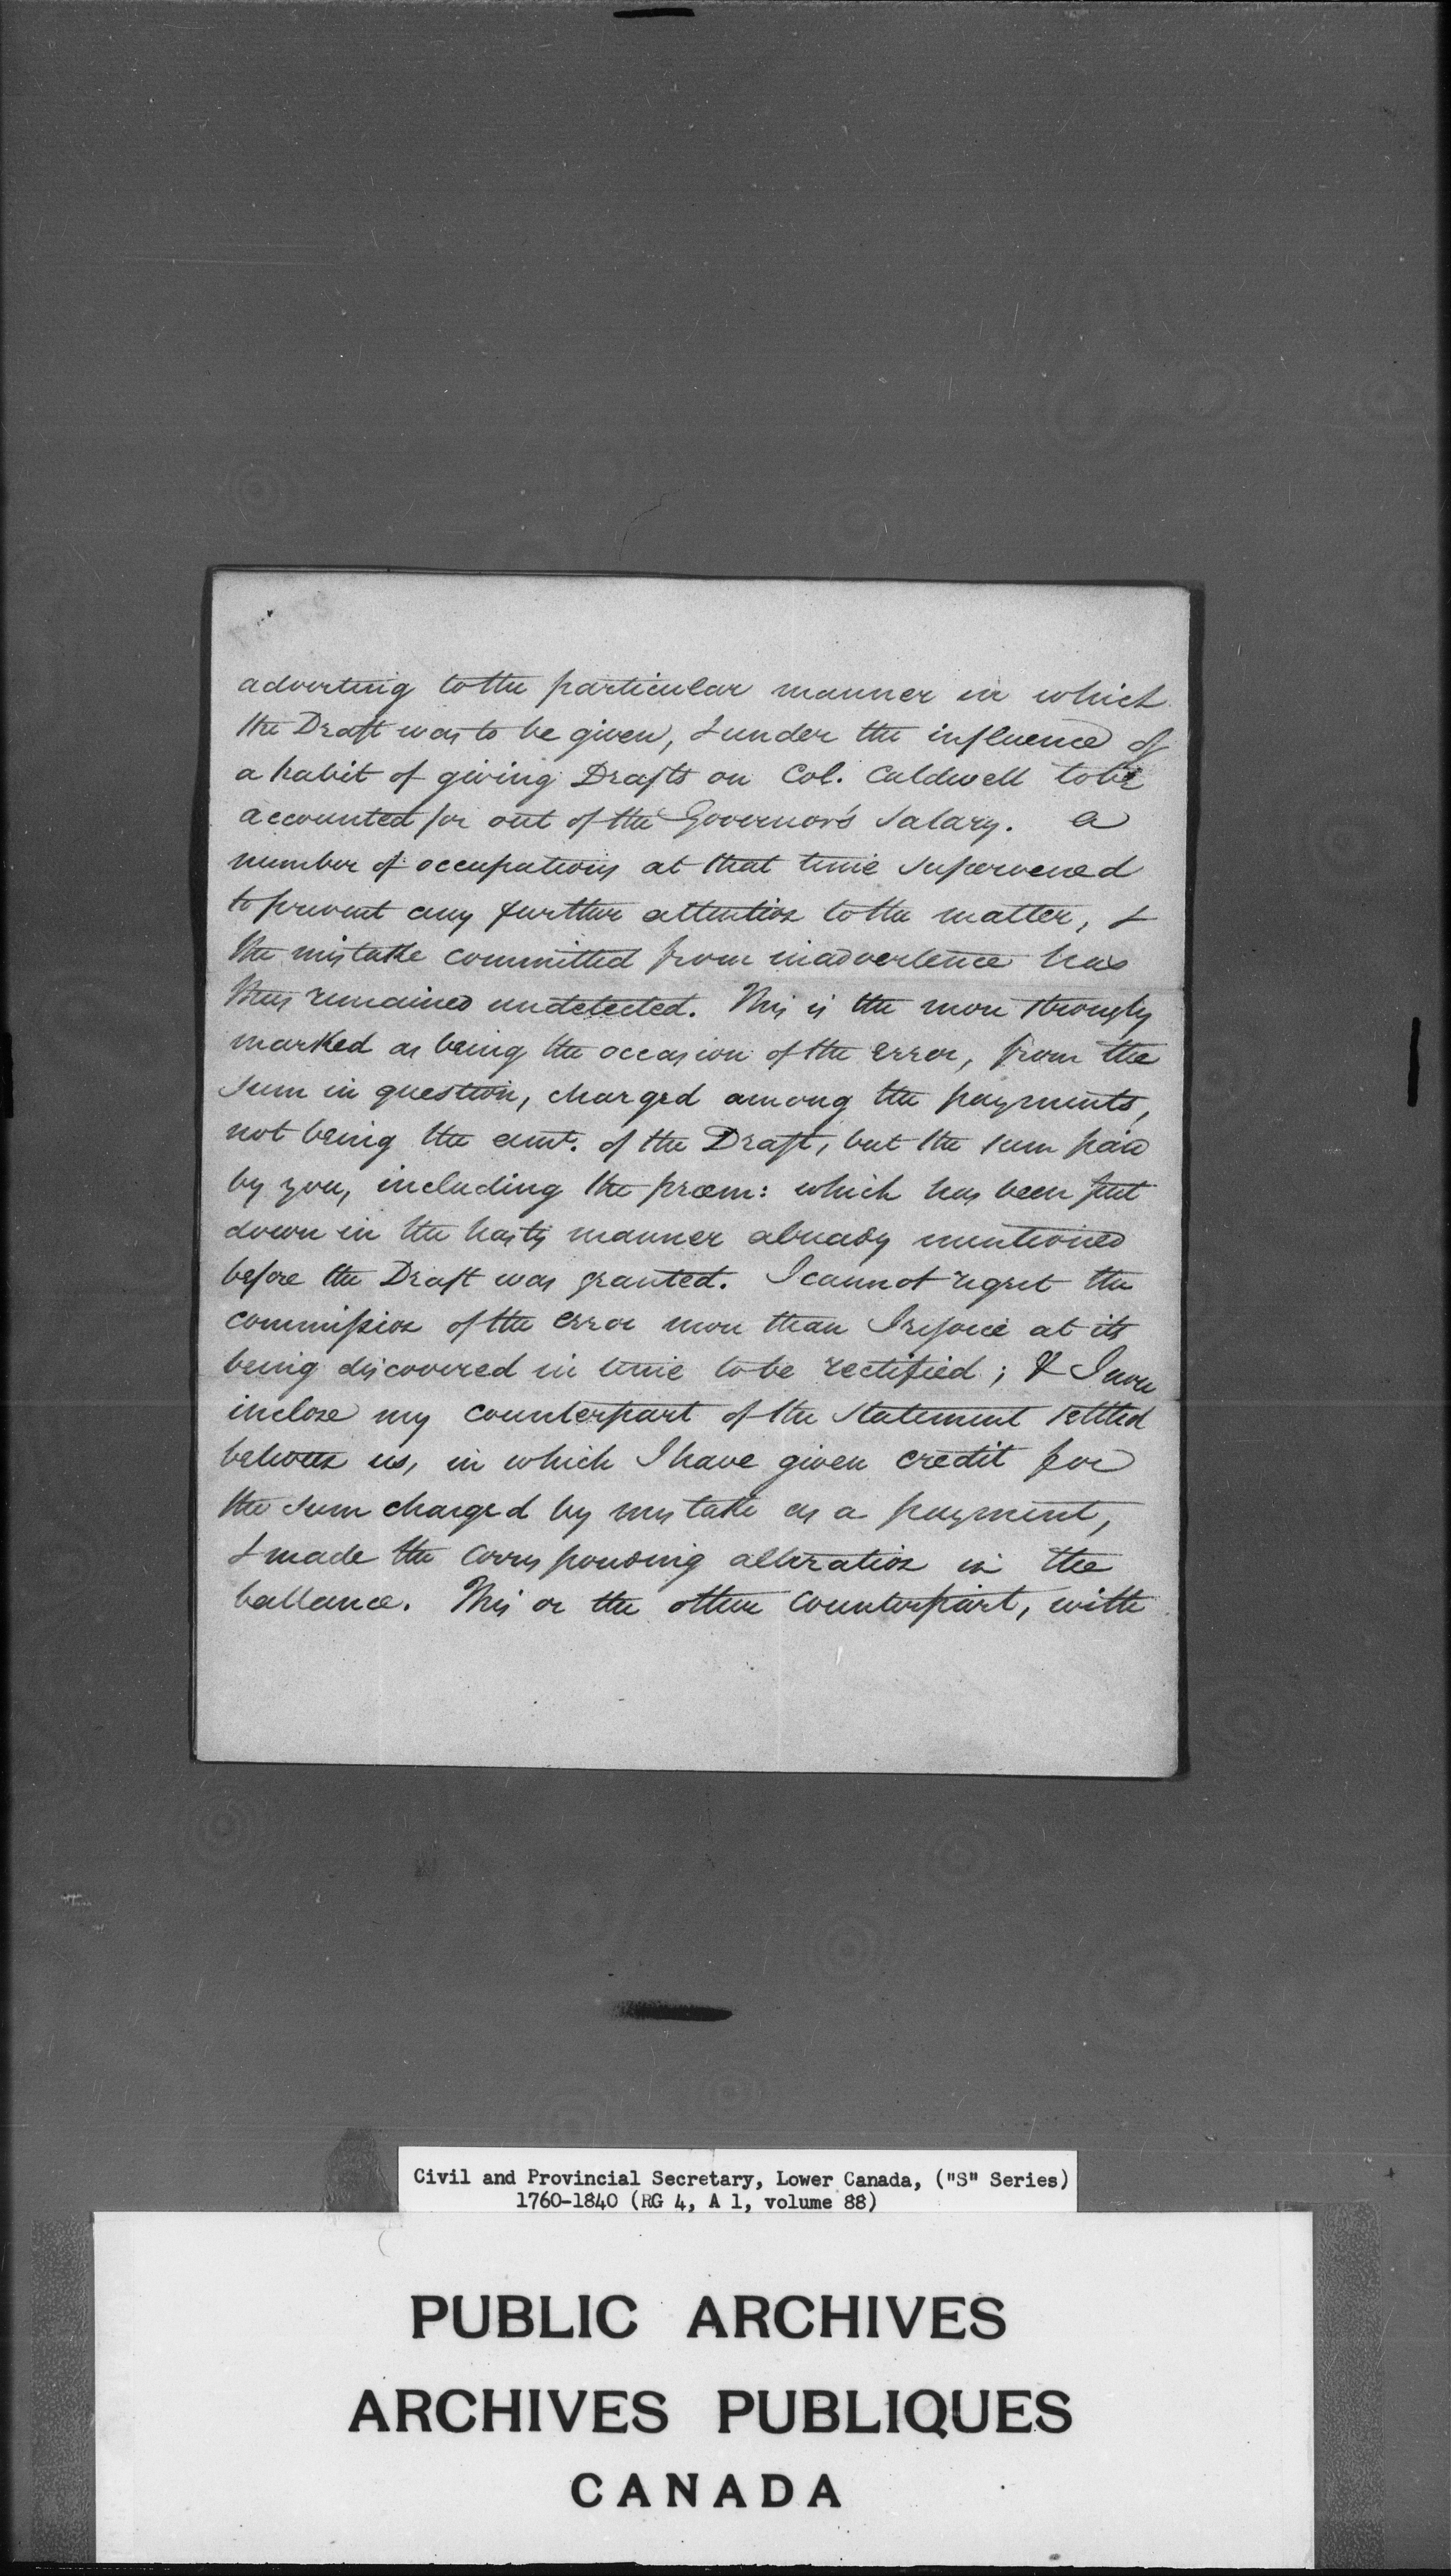 adverting to the particular manner in which
the Draft was to be given, & under the influence of
a habit of giving Drafts on Col. Caldwell to be
accounted for out of the Governor's Salary. A
number of occupations at that time supervened
to prevent any further attention to the matter, &
the mistake committed from inadvertence has
thus remained undetected. This is the more strongly
marked as being the occasion of the error, from the
Sum in question, charged among the payments,
not being the amt. of the Draft, but the sum paid
by you, including the præm: which has been put
down in the hasty manner already mentioned
before the Draft was granted. I cannot regret the
commission of the error more than I rejoice at its
being discovered in time to be rectified; & I now
inclose my counterpart of the Statement settled
between us, in which I have given credit for
the Sum charged by mistake as a payment,
& made the corresponding alteration in the
ballance. This or the other Counterpart, with
Civil and Provincial Secretary, Lower Canada, ("S" Series)
1760-1840 (RG 4, A 1, volume 88)
PUBLIC ARCHIVES
ARCHIVES PUBLIQUES
CANADA